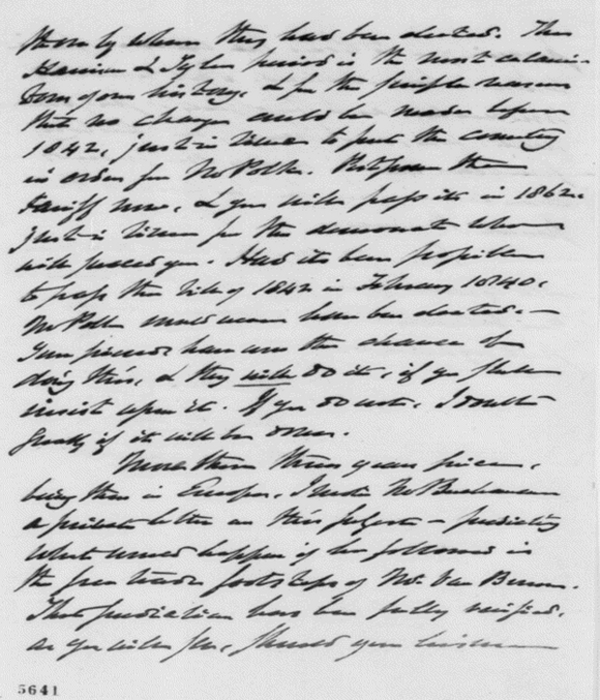 them by whom they had been elected. The
Harrison & Tyler period is the most calami-
tous of our history, & for the simple reason
that no change could be made before
1842, just in time to put the country
in order for Mr Polk. Postpone the
tariff now, & you will pass it in 1862,
just in time for the democrats who
will succeed you. Had it been possible
to pass the bill of 1842 in February 1840,
Mr Polk would never have been elected.—
Your friends have now the chance of
doing this, & they will do it, if you shall
insist upon it. If you do not, I doubt
greatly if it will be done.
More than three years since,
being then in Europe, I wrote Mr Buchanan
a private letter on this subject — predicting
what would happen if he followed in
the free trade footsteps of Mr. Van Buren.
That prediction has been fully verified,
as you will see, should you
5641